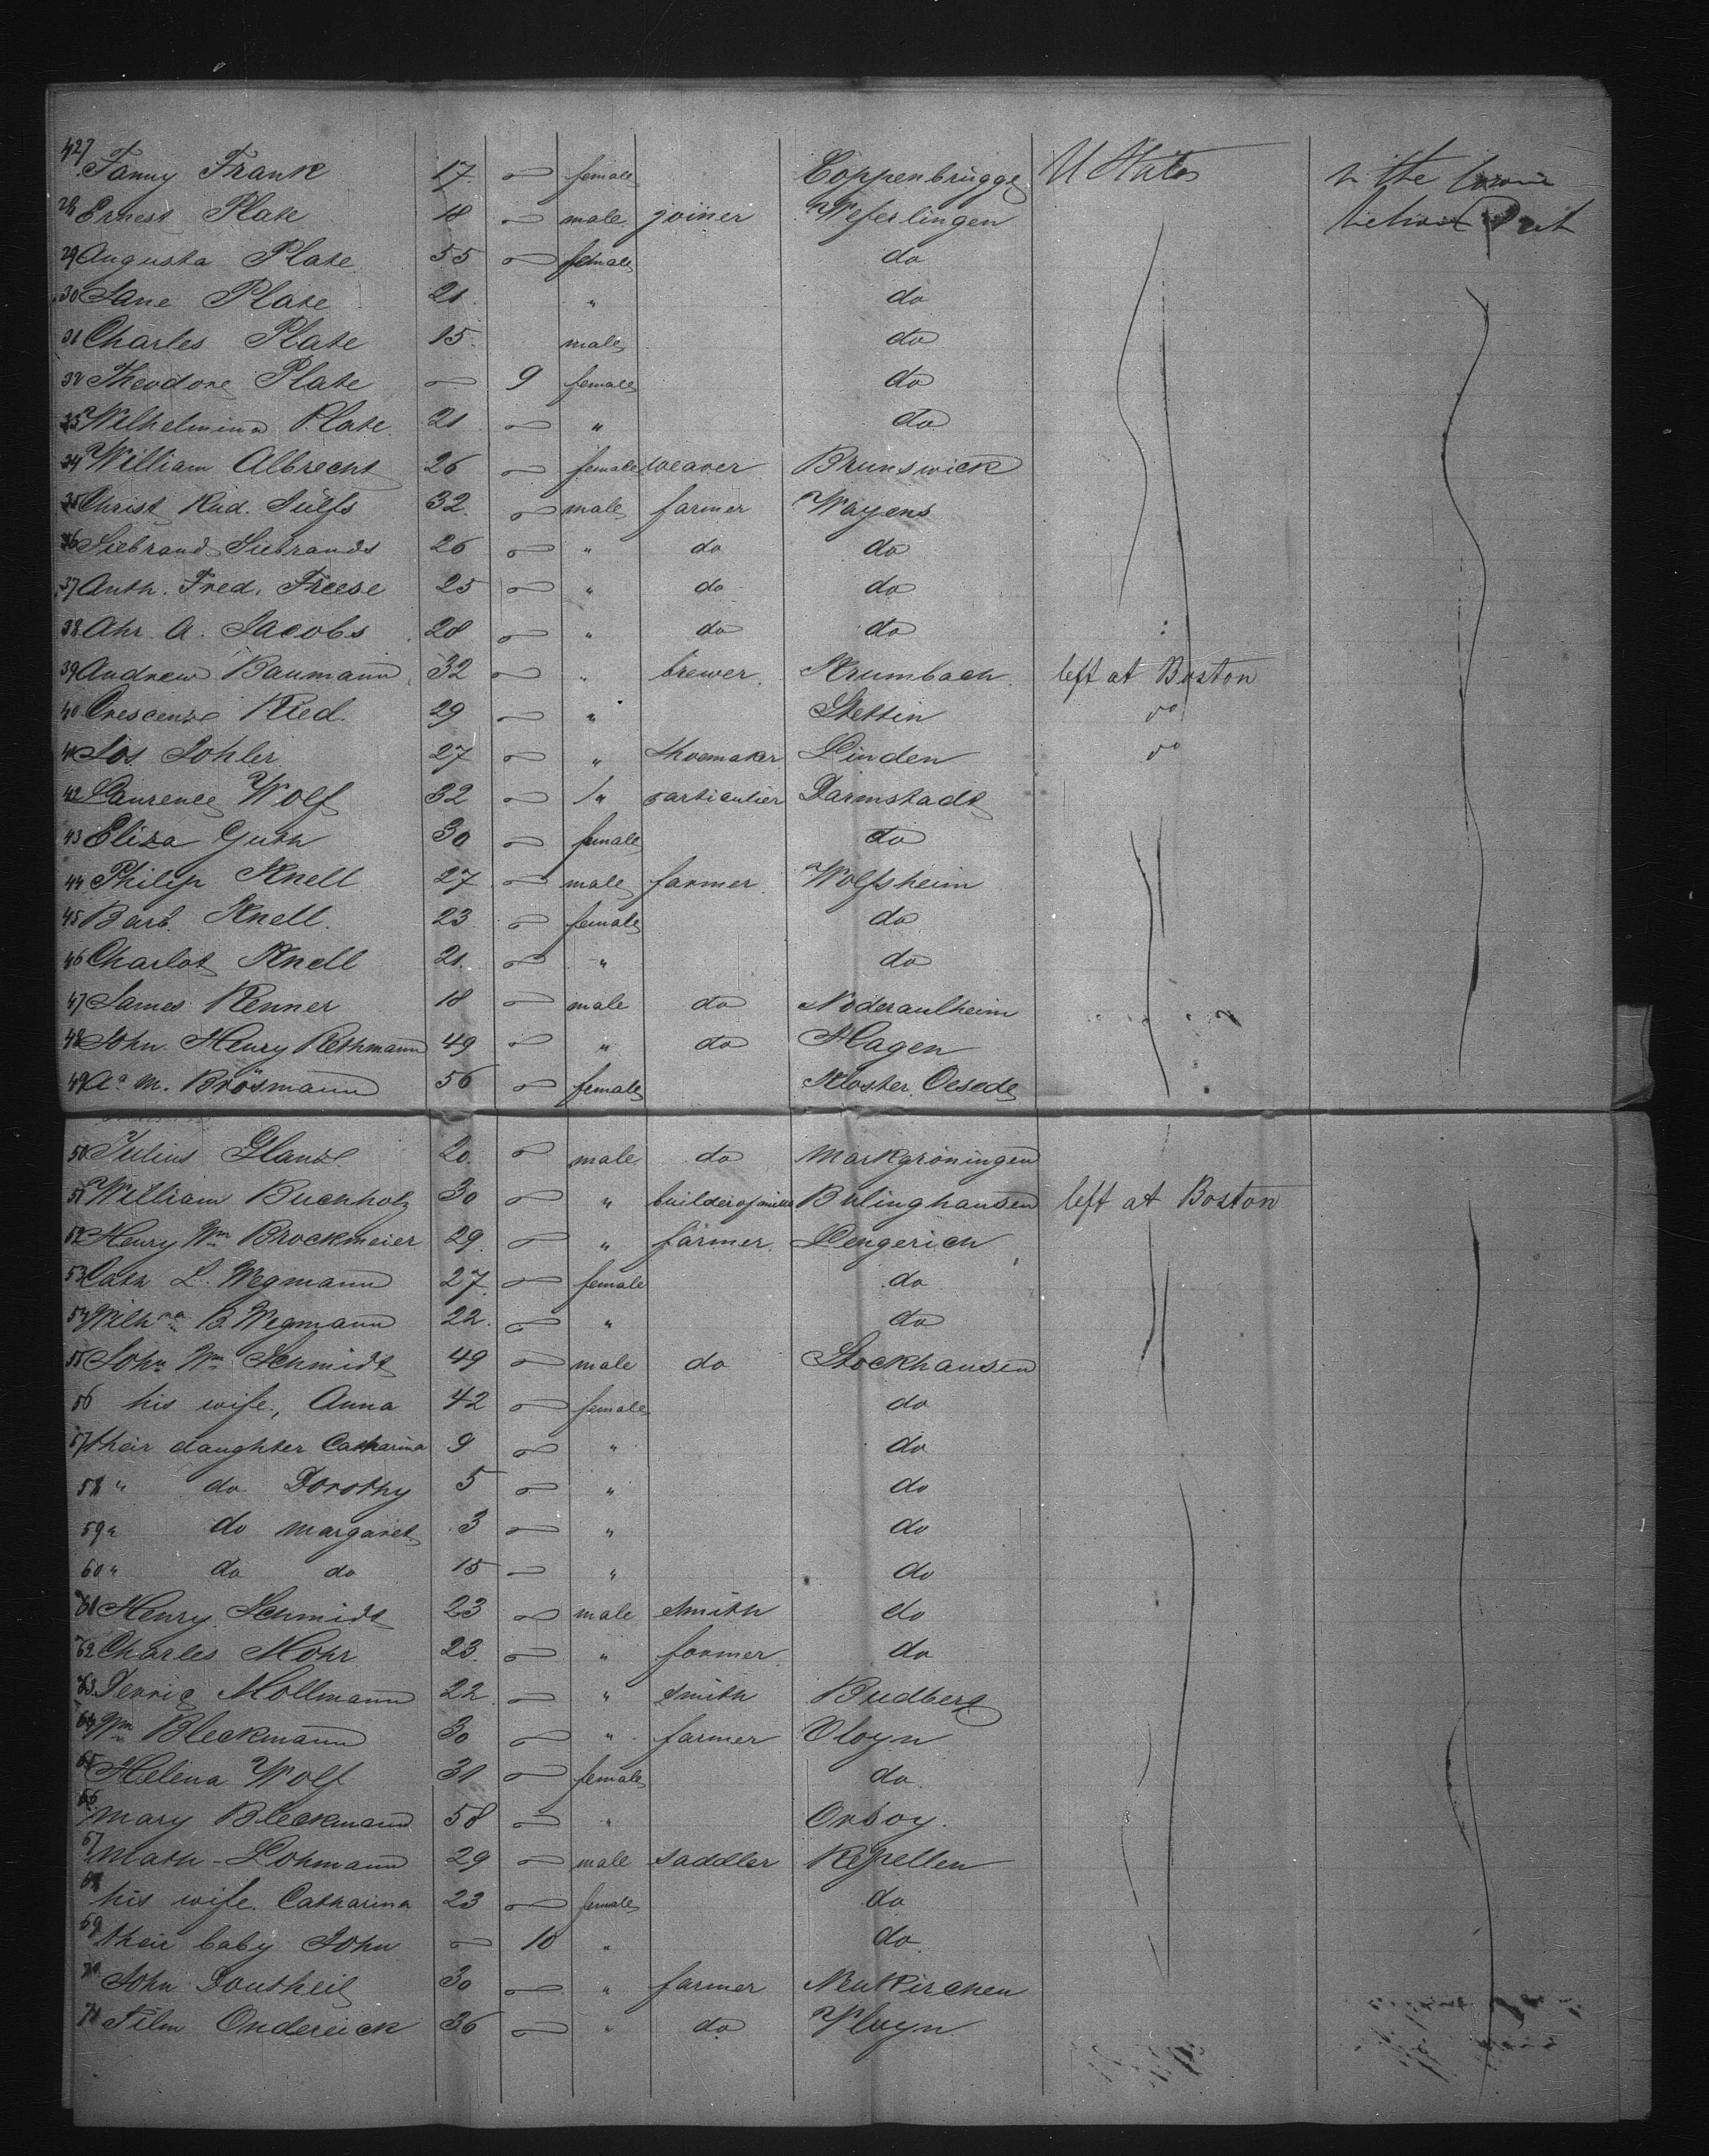 427 Fanny Frank 17 female Coppenbrügge U States in the
28 Ernest Plate 18 male joiner Weferlingen
29 Augusta Plate 55 female do
30 Jane Plate 21 " do
31 Charles Plate 15 male do
32 Theodore Plate 9 female do
33 Wilhelmina Plate 21 " do
34 William Albrecht 26 female weaver Brunswick
35 Christ. Rud. Sülfs 32 male farmer Wayens
36 Siebrand Siebrands 26 " do do
37 Anth. Fred. Freese 25 " do do
38 Ahr. A. Jacobs 28 " do do
39 Andrew Baumann 32 " brewer Krumbach left at Boston
40 Crescenze Ried. 29 " Stettin do
41 Jos Johler 27 " shoemaker Linden do
42 Laurence Wolf 32 " particulier Darmstadt
43 Eliza Guth 30 female do
44 Philip Knell 27 male farmer Wolfsheim
45 Barb. Knell. 23 female do
46 Charlot Knell 21 " do
47 James Renner 18 male do Noderaulheim
48 John Henry Rethmann 49 " do Hagen
49 Aa M. Brösmann 56 female Kloster Oesede
50 Julius Glanze 20 male do Markgröningen
51 William Buchholz 30 " builder of mills Bulinghausen left at Boston
52 Henry Wm Brockmeier 29 " farmer Lengerich
53 Cath L. Wegmann 27 female do
54 Wilhna B. Wegmann 22 " do
55 John Wm Schmidt 49 male do Stockhausen
56 his wife, Anna 42 female do
57 their daughter Catharina 9 " do
58 " do Dorothy 5 " do
59 " do Margaret 3 " do
60 " do do 15 " do
61 Henry Schmidt 23 male smith do
62 Charles Mohr 23 " farmer do
63 Derrig Mollmann 22 " smith Budberg
64 Wm Bleckmann 30 " farmer Vloyn
65 Helena Wolf 31 female do
66 Mary Bleckmann 58 " Orsoy
67 Math. Lohmann 29 male saddler Repellen
68 his wife Catharina 23 female do
69 their baby John 10 " do
70 John Doutheil 30 " farmer Neukirchen
71 Film Ondereick 36 " do Vluyn